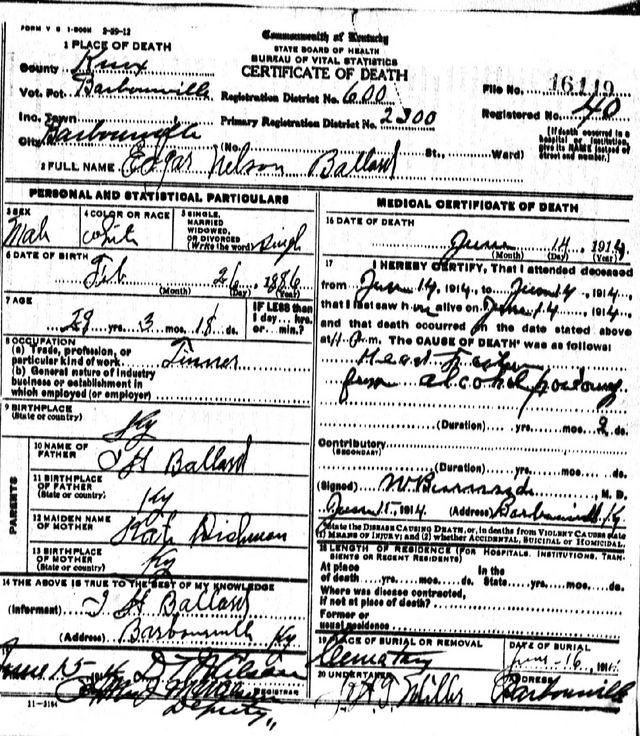 FORM V S 1-500M 2-29-12
1 PLACE OF DEATH
County Knox
Vot. Pct. Barbourville
Inc. Town
City Barbourville
Commonwealth of Kentucky
STATE BOARD OF HEALTH
BUREAU OF VITAL STATISTICS
CERTIFICATE OF DEATH
Registration District No. 600
Primary Registration District No. 2300
(No. St., Ward)
File No. 16119
Registered No. 40
(If death occurred in a
hospital or institution,
give its NAME instead of
street and number.)
2 FULL NAME Edgar Nelson Ballard
PERSONAL AND STATISTICAL PARTICULARS
3 SEX
Male
4 COLOR OR RACE
White
5 SINGLE,
MARRIED
WIDOWED,
OR DIVORCED
(Write the word) Single
6 DATE OF BIRTH
Feb 26, 1886
(Month) (Day) (Year)
7 AGE
28 yrs. 3 mos. 18 ds.
IF LESS than
1 day... hrs.
or... min.?
8 OCCUPATION
(a) Trade, profession, or
particular kind of work. Tinner
(b) General nature of industry
business or establishment in
which employed (or employer)
9 BIRTHPLACE
(State or country)
Ky
PARENTS
10 NAME OF
FATHER
Ballard
11 BIRTHPLACE
OF FATHER
(State or country)
Ky
12 MAIDEN NAME
OF MOTHER
Kate Dishman
13 BIRTHPLACE
OF MOTHER
(State or country)
Ky
14 THE ABOVE IS TRUE TO THE BEST OF MY KNOWLEDGE
(Informant) Ballard
(Address) Barbourville Ky
June 15 D T Wilson
REGISTRAR
Deputy
11-3184
MEDICAL CERTIFICATE OF DEATH
16 DATE OF DEATH
June 14, 1914
(Month) (Day) (Year)
17 I HEREBY CERTIFY, That I attended deceased
from June 14, 1914, to June 14, 1914,
that I last saw him alive on June 14, 1914,
and that death occurred, on the date stated above
at m. The CAUSE OF DEATH was as follows:
Heart
from alcohol
(Duration) yrs. mos. 2 ds.
Contributory
(SECONDARY)
(Duration) yrs. mos. ds.
(Signed) M.D.
June 15, 1914 (Address) Barbourville Ky
State the DISEASE CAUSING DEATH, or, in deaths from VIOLENT CAUSES state
(1) MEANS OF INJURY; and (2) whether ACCIDENTAL, SUICIDAL or HOMICIDAL.
18 LENGTH OF RESIDENCE (FOR HOSPITALS, INSTITUTIONS, TRAN-
SIENTS OR RECENT RESIDENTS)
At place
of death yrs. mos. ds.
In the
State, yrs. mos. ds.
Where was disease contracted,
if not at place of death?
Former or
usual residence
19 PLACE OF BURIAL OR REMOVAL
Cemetary
DATE OF BURIAL
June 16, 191
20 UNDERTAKER
Miller
ADDRESS
Barbourville